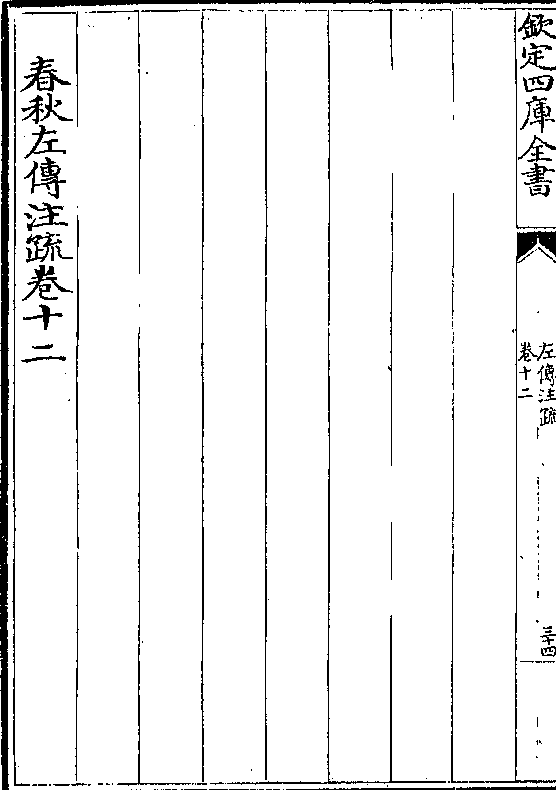 欽定四庫全書
左傳注疏
卷十二
三十四
春秋左傳注疏卷十二